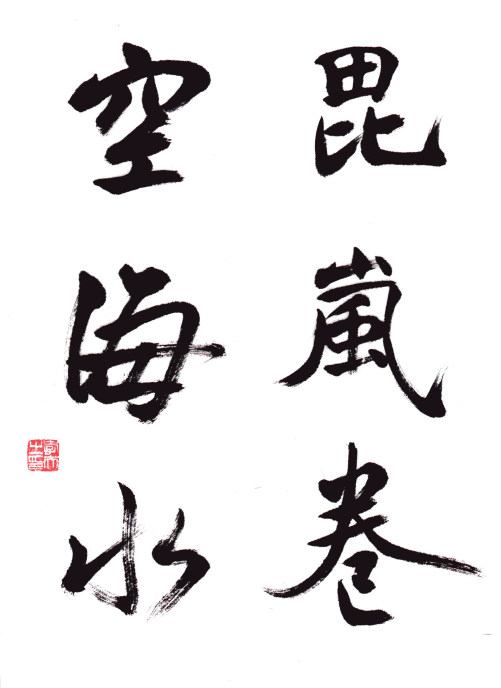 毘嵐巻
空海水